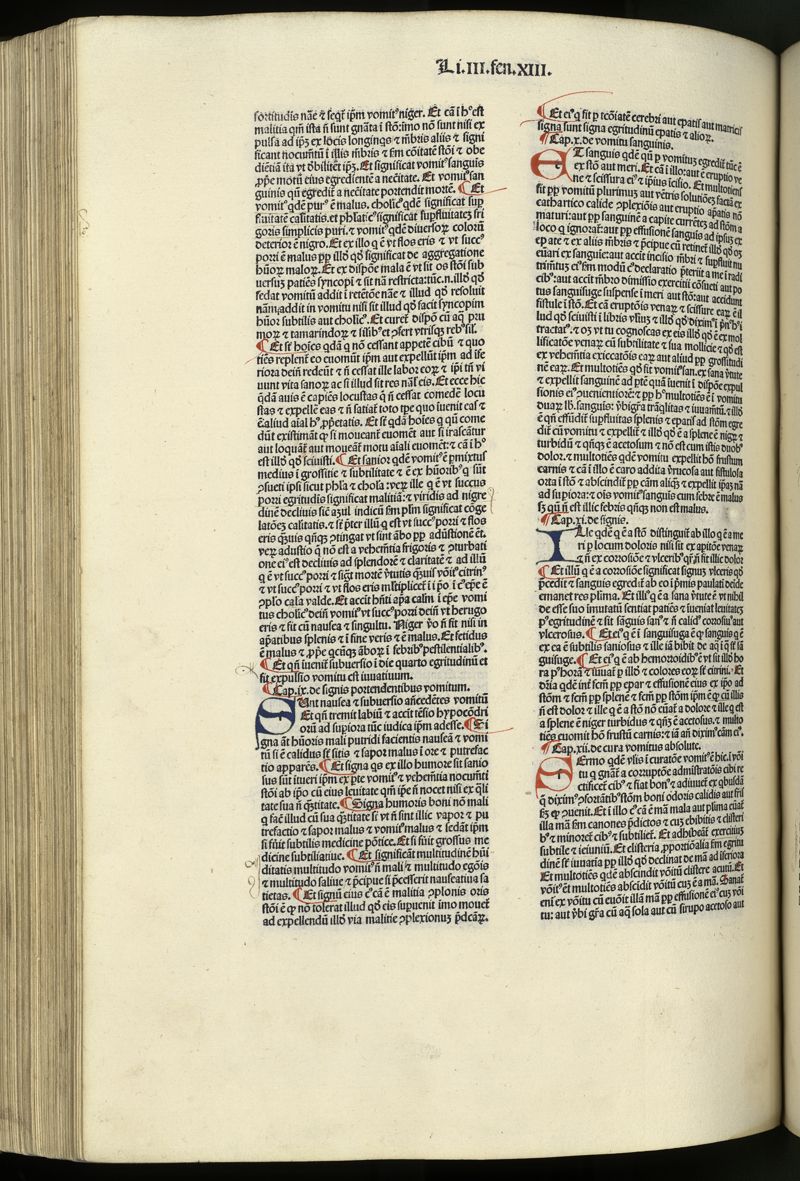 Li.III.fen.XIII.
sortitudis nãe ⁊ seqť ip̃m vomitꝰ niger. Et cã ī hͦ est
malitia qm̃ ista ñ sunt gnãta ī stõ: īmo nõ sunt nisi ex
pulsa ad ip̃ꝫ ex locis longinqs ⁊ mb̃ris aliis ⁊ signi
ficant nocumẽtũ ī illis mb̃ris ⁊ fm cõitatẽ stõi ⁊ obe
diẽtiã ita vt d̃bilitẽt ip̃ꝫ. Et significat vomitꝰ sanguis
ꝓpe motũ eius egrediente a necitate. Et vomitꝰ san
guinis qñ egredit̃ a necitate portendit mortẽ. Et
vomitꝰ qdẽ purꝰ ẽ malus. cholicꝰ qdẽ significat sup
fluitatẽ calitatis. et phlãticꝰ significat supfluitatẽ fri
goris simplicis puri. ⁊ vomitꝰ qdẽ diuersorꝝ colorũ
deterior ẽ nigro. Et ex illo q ẽ vt flos eris ⁊ vt succꝰ
porri ẽ malus pp illð qð significat de aggregatione
hũorꝝ malorꝝ. Et ex dispõe mala ẽ vt sit os stõi sub
versuꝫ patiẽs syncopī ⁊ sit nã restricta: tũc.n. illð qð
sedat vomitũ addit ī retẽtõe nãe ⁊ illud qð resoluit
nãm addit in vomitu nisi sit illud qð facit syncopim
hũor subtilis aut cholicꝰ. Et curet̃ dispõ cũ aq̃ pru
morꝝ ⁊ tamarindorꝝ ⁊ silibꝰ et ꝯfert vtrisqꝫ rebꝰ sil̃.
Et st̃ hoĩes qdã q nõ cessant appetẽ cibũ ⁊ quo
tiẽs replent̃ eo euomũt ip̃m aut expellũt ip̃m ad ife
riora dein redeũt ⁊ ñ cessat ille labor eorꝝ ⁊ ip̃i tñ vi
uunt vita sanorꝝ ac si illud sit res nãl̃ eis. Et ecce hic
qdã auis ẽ capiẽs locustas q ñ cessat comedẽ locu
stas ⁊ expellẽ eas ⁊ ñ satiat̃ toto tꝑe quo iuenit eas ⁊
ẽ aliud aĩal hꝰ ꝓpetatis. Et st̃ qdã hoĩes q qũ come
dũt existimãt ꝙ si moueant̃ euomẽt aut si irascãtur
aut loquãt̃ aut moueãt̃ motu aĩali euomẽt: ⁊ cã ī hͦ
est illð qð sciuisti. Et sanior qdẽ vomitꝰ ẽ pmixtus
medius ī grossitie ⁊ subtilitate ⁊ ẽ ex hũoribꝰ q sũt
ꝯsueti ipsi sicut phl̃a ⁊ chol̃a: veꝝ ille q ẽ vt succus
porri egritudĩs significat malitiã: ⁊ viridis ad nigre
dinẽ decliuis sic̃ aꝫul indicũ fm plm̃ significat cõge
latõeꝫ calitatis. ⁊ st̃ p̃ter illũ q est vt succꝰ porri ⁊ flos
eris qꝫuis qñqꝫ ꝯtingat vt sint ãbo pp adustionẽ ẽt.
veꝝ adustio q̃ nõ est a vehem̃tia frigoris ⁊ ꝓturbati
one eiꝰ est decliuis ad splendorẽ ⁊ claritatẽ ⁊ ad illũ
q ẽ vt succꝰ porri ⁊ sigt̃ mortẽ v̈tutis qꝫuis võiꝰ citrinꝰ
⁊ vt succꝰ porri ⁊ vt flos eris mltiplicet̃ ī ipͦ i cꝰ epẽ ẽ
ꝯplo cal̃a valde. Et accit hñti ap̃a calm ī epe vomi
tus cholicꝰ dein vomitꝰ vt succꝰ porri dein vt herugo
eris ⁊ sit cũ nausea ⁊ singultu. Niger v̈o ñ sit nisi in
ap̃atibus splenis ⁊ ī fine veris ⁊ ẽ malus. Et fetidus
ẽ malus ⁊ ꝓpe qcũqꝫ ãborꝝ ī febribꝰ pestilentialibꝰ.
Et qñ iuenit̃ subuersio ī die quarto egritudinũ et
sit expulsio vomitu est iuuatiuum.
Cap.ix. de signis portendentibus vomitum.
Sunt nausea ⁊ subuersio añcedẽtes vomitũ
Et qñ tremit labiũ ⁊ accit tẽsio hypocõdri
orũ ad supiora tũc iudica ip̃m adesse. Si
gna ãt hũoris mali putridi facientis nauseã ⁊ vomi
tũ si ẽ calidus st̃ sitis ⁊ sapor malus ī ore ⁊ putrefac
tio apparẽs. Et signa qs ex illo humore sit sanio
sus sũt itueri ip̃m ex pte vomitꝰ ⁊ vehem̃tia nocum̃ti
stõi ab ipͦo cũ eius leuitate qm̃ ip̃e ñ nocet nisi ex q̃li
tate sua ñ q̃ꝫtitate. Signa humoris boni nõ mali
q̃ facẽ illud cũ sua q̃ꝫtitate st̃ vt ñ sint illic vapor ⁊ pu
trefactio ⁊ sapor malus ⁊ vomitꝰ malus ⁊ sedãt̃ ip̃m
si fũit subtilis medicine põtice. Et si fũit grossus me
dicine subtiliatiue. Et significãt multitudinẽ hũi
ditatis multitudo vomitꝰ ñ mali ⁊ multitudo egõis
⁊ multitudo saliue ⁊ p̃cipue si p̃cesserit nauseatiua sa
tietas. Et signũ eius eͦ cã ẽ malitia ꝯplonis oris
stõi ẽ ꝙ nõ tolerat illud qð eis supuenit imo mouet̃
ad expellendũ illð via malitie ꝯplexionuꝫ p̃dcãꝝ.
Et eiͦ q sit p cõiatẽ cerebri aut epatis aut matricis
signa sunt signa egritudinũ epatis ⁊ alioꝝ.
Cap.x. de vomitu sanguinis.
Et sanguis qdẽ qñ p vomituꝫ egredit̃ tũc ẽ
ex stõ aut meri. Et cã ī illo: aut ẽ eruptio ve
ne ⁊ scissura eiꝰ ⁊ ip̃ius ĩcisio. Et multotiens
sit pp vomitũ plurimuꝫ aut vẽtris solutiõeꝫ factã ex
cathartico calide ꝯplexiõis aut eruptio ap̃atis nõ
maturi: aut pp sanguinẽ a capite currẽteꝫ ad stõm a
loco q ignorat̃: aut pp effusionẽ sanguis ad ip̃suꝫ ex
epate ⁊ ex aliis mb̃ris ⁊ p̃cipue cũ retinet̃ illð qð oꝫ
euãri ex sanguine: aut accit incisio mb̃ri ⁊ supfluit nu
trim̃tuꝫ eiꝰ fm modũ cꝰ declaratio p̃teriit a me ī radi
cibꝰ: aut accit mb̃ro dimissio exercitii cõsueti aut po
tus sanguisuge suspense ī meri aut stõ: aut accidunt
fistule ī stõ. Et cã eruptõis venarꝝ ⁊ scissure earꝝ ẽ il
lud qð sciuisti ī libris vl̃iuꝫ ⁊ illð qð diximꝰ ī p̃ñ hꝰ ī
tractatꝰ. ⁊ oꝫ vt tu cognoscas ex eis illð qð ẽ ex mol
lificatõe venarꝝ cũ subtilitate ⁊ sua mollicie ⁊ qð est
ex vehem̃tia exiccatõis earꝝ aut aliud pp grossitudi
nẽ earꝝ. Et multotiẽs qð sit vomitꝰ san. ex sana v̈tute
⁊ expellit sanguinẽ ad ptẽ quã iuenit ī dispõe expul
sionis eiꝰ ꝯuenientiorẽ: ⁊ pp hͦ multotiẽs ẽ ī vomitu
duarꝝ lb. sanguis: v̈bigr̃a trãq̃litas ⁊ iuuam̃tũ. ⁊ illð
ẽ qñ effũdit̃ supfluitas splenis ⁊ epatis ad stõm egre
dit̃ cũ vomitu ⁊ expellit̃ ⁊ illð qð ẽ a splene ẽ nigrꝝ ⁊
turbidũ ⁊ qñqꝫ ẽ acetosum ⁊ nõ est cum istis duobꝰ
dolor. ⁊ multotiẽs qdẽ vomitu expellit hõ frustum
carnis ⁊ cã ī illo ẽ caro addita v̈rucosa aut fistulosa
orta ī stõ ⁊ abscindit̃ pp cãm aliq̃ꝫ ⁊ expellit ip̃aꝫ nã
ad supiora: ⁊ oĩs vomitꝰ sanguis cum febre ẽ malus
sꝫ qũ ñ est illic febris qñqꝫ non est malus.
Cap.xi. de signis.
Ille qdẽ q ẽ a stõ distinguit̃ ab illo q ẽ a me
ri p locum doloris nisi sit ex apitõe venarꝝ
⁊ ñ ex corrosiõe ⁊ vlceribꝰ qr̃ ñ sit illic dolor
Et illũ q ẽ a corrosiõe significat signuꝫ vlceris qð
p̃cedit ⁊ sanguis egredit̃ ab eo ip̃mis paulati deide
emanet res plima. Et illiꝰ q ẽ a sana v̈tute ẽ vt nihil
de esse suo imutatũ sentiat patiẽs ⁊ iueniat leuitateꝫ
pꝰ egritudinẽ ⁊ sit sãguis sanꝰ ⁊ ñ calidꝰ corosiuꝰ aut
vlcerosus. Et eiꝰ q ẽ ī sanguisuga ẽ ꝙ sanguis q ẽ
ex ea ẽ subtilis saniosus ⁊ ille iã bibit de aq̃ ī q̃ st̃ sã
guisuge. Et eiͦ q ẽ ab hemoroidibꝰ ẽ vt sit illð ho
ra pͦ horã ⁊ iuuat̃ p illð ⁊ colores eorꝝ st̃ citrini. Et
dria qdẽ int̃ scm̃ pp epar ⁊ effusionẽ eius ex ipͦo ad
stõm ⁊ scm̃ pp splenẽ ⁊ scm̃ pp stõm ip̃m ẽ ꝙ cũ illis
ñ est dolor ⁊ ille q ẽ a stõ nõ euat̃ a dolore ⁊ ille q est
a splene ẽ niger turbidus ⁊ qñꝫ ẽ acetosus. ⁊ multo
tiẽs euomit hõ frustũ carnis: ⁊ iã añ diximꝰ cãm eiꝰ.
Cap.xii. de cura vomitus absolute.
Sermo qdẽ vl̃is ī curatõe vomitꝰ ẽ hic. ī või
tu q gnãt̃ a corruptõe admĩstratõis cibi re
ctificet̃ cibꝰ ⁊ fiat bonꝰ ⁊ adiuuet̃ ex qbusdã
q̃ diximꝰ ꝯfortãtibꝰ stõm boni odoris calidis aut fri
sꝫ ꝙ ꝯuenit. Et ī illo cꝰ cã ẽ mã mala aut plima euãt̃
illa mã fm canones p̃dictos ⁊ cuꝫ ebibitis ⁊ clisteri
bꝰ ⁊ minoret̃ cibꝰ ⁊ subtiliet̃. Et adhibeat̃ exercitiuꝫ
subtile ⁊ ieiuniũ. Et clisteria ꝓportiõalia sm̃ egritu
dinẽ st̃ iuuatia pp illð qð declinat de mã ad iferiora
Et multotiẽs qdẽ abscindit võitũ clistere acutũ. Et
võitꝰ ẽt multotiẽs abscidit võitũ cuꝫ ẽ a mã. Sanat
eni ex võitu cũ euõit illã mã pp effusionẽ eiꝰ cuꝫ või
tu: aut v̈bi gr̃a cũ aq̃ sola aut cũ sirupo acetoso aut